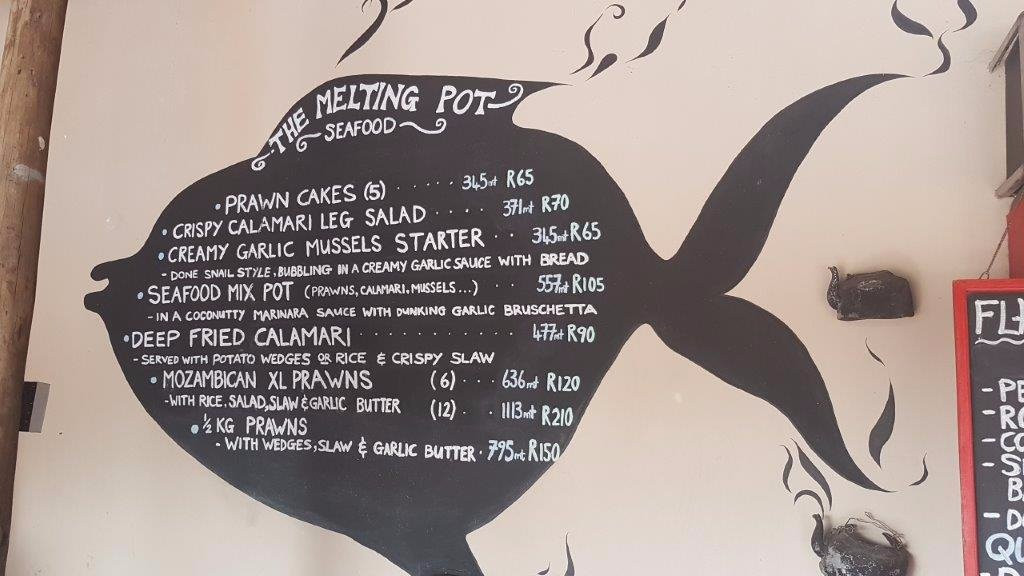 THE MELTING POT
SEAFOOD
• PRAWN CAKES (5) . . . . . . 345mt R65
• CRISPY CALAMARI LEG SALAD . . . . . 371mt R70
• CREAMY GARLIC MUSSELS STARTER . . 345mt R65
- DONE SNAIL STYLE, BUBBLING IN A CREAMY GARLIC SAUCE WITH BREAD
• SEAFOOD MIX POT (PRAWNS, CALAMARI, MUSSELS...) . . 557mt R105
- IN A COCONUTTY MARINARA SAUCE WITH DUNKING GARLIC BRUSCHETTA
• DEEP FRIED CALAMARI . . . . . . . . . 477mt R90
- SERVED WITH POTATO WEDGES OR RICE & CRISPY SLAW
• MOZAMBICAN XL PRAWNS (6) . . . 636mt R120
- WITH RICE, SALAD, SLAW & GARLIC BUTTER (12) . . 1113mt R210
• ½ KG PRAWNS
- WITH WEDGES, SLAW & GARLIC BUTTER . 795mt R150
- PE
- RO
- CO
- S
B
- D
QU